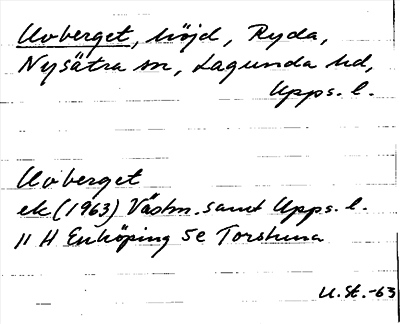 Uvberget, höjd, Ryda,
Nysätra sn, Lagunda hd,
Upps. l.
Uvberget
ek (1963) Västm. samt Upps. l.
11 H Enköping 5e Torstuna
U. St. -63